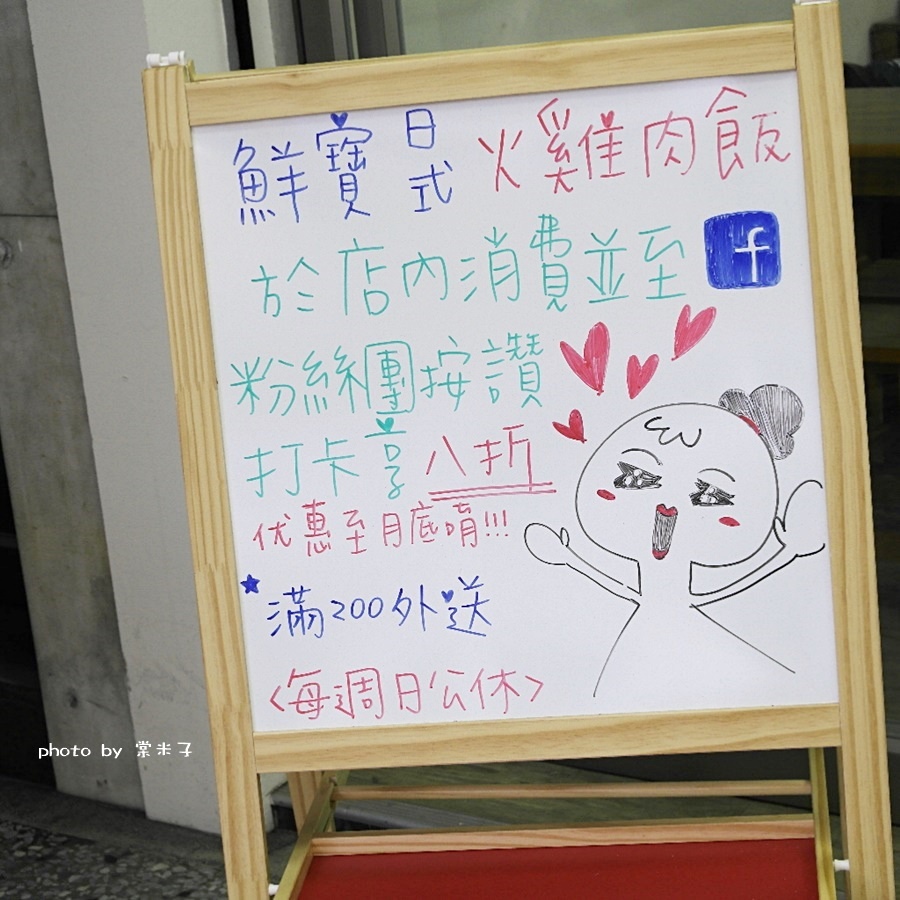 鮮寶日式火雞肉飯
於店內消費並至f
粉絲團按讚
打卡享八折
优惠至月底唷!!!
★滿200外送
<每週日公休>
photo by 棠米子